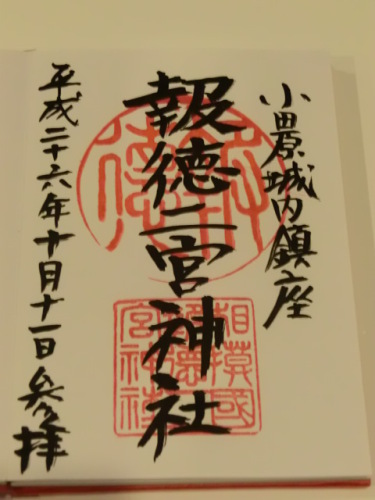 小田原城内鎮座
報徳二宮神社
平成二十六年十月十一日参拝
報徳
相模國
報徳二
宮神社